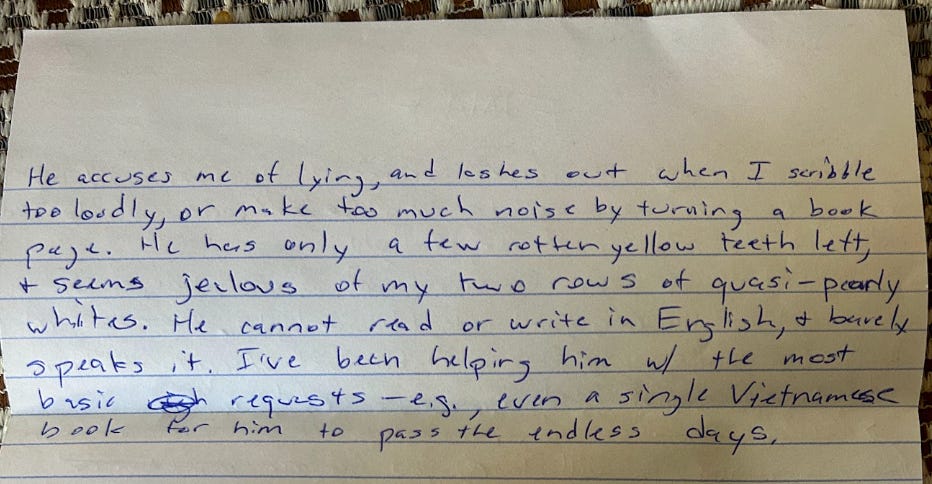 He accuses me of lying, and lashes out when I scribble
too loudly, or make too much noise by turning a book
page. He has only a few rotten yellow teeth left,
+ seems jelous of my two rows of quasi-pearly
whites. He cannot read or write in English, + barely
speaks it. I've been helping him w/ the most
basic requests — e.g., even a single Vietnamese
book for him to pass the endless days.